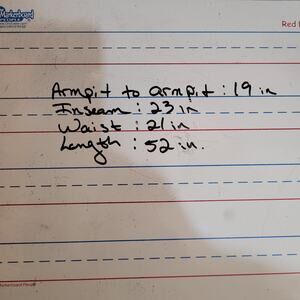 Markerboard
Red
Armpit to armpit : 19 in
Inseam : 23 in
Waist : 21 in
Length : 52 in.